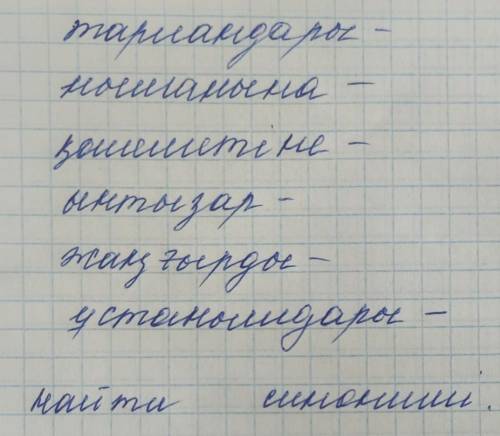 тарландары -
нысанына -
қошеметіне -
ынтызар -
жаңғырды -
ұстанымдары -
найти синоним.